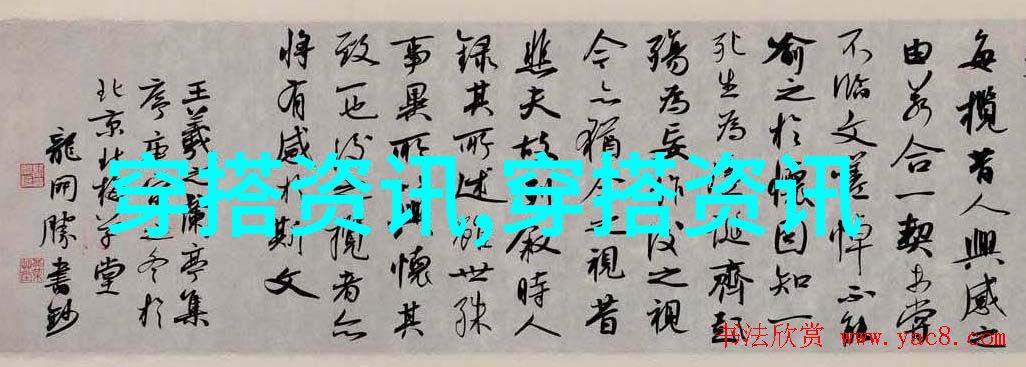 每攬昔人興感之
由若合一契未嘗
不臨文嗟悼不能
喻之於懷固知一
死生為虛誕齊彭
殤為妄作後之視
今亦猶今之視昔
悲夫故列叙時人
錄其所述雖世殊
事異所以興懷其
致一也後之攬者亦
將有感於斯文
王羲之蘭亭集
序庚寅之冬於
北京北梅草堂
龍開勝書鈔
穿搭资讯,穿搭资讯
书法欣赏 www.yac8.com